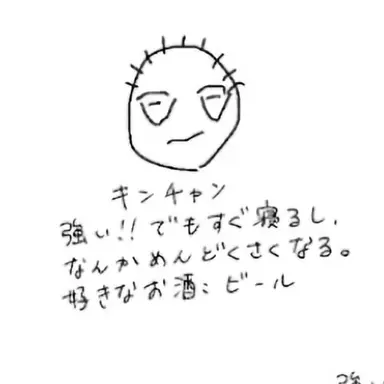 キンチャン
強い!!でもすぐ寝るし、
なんかめんどくさくなる。
好きなお酒:ビール